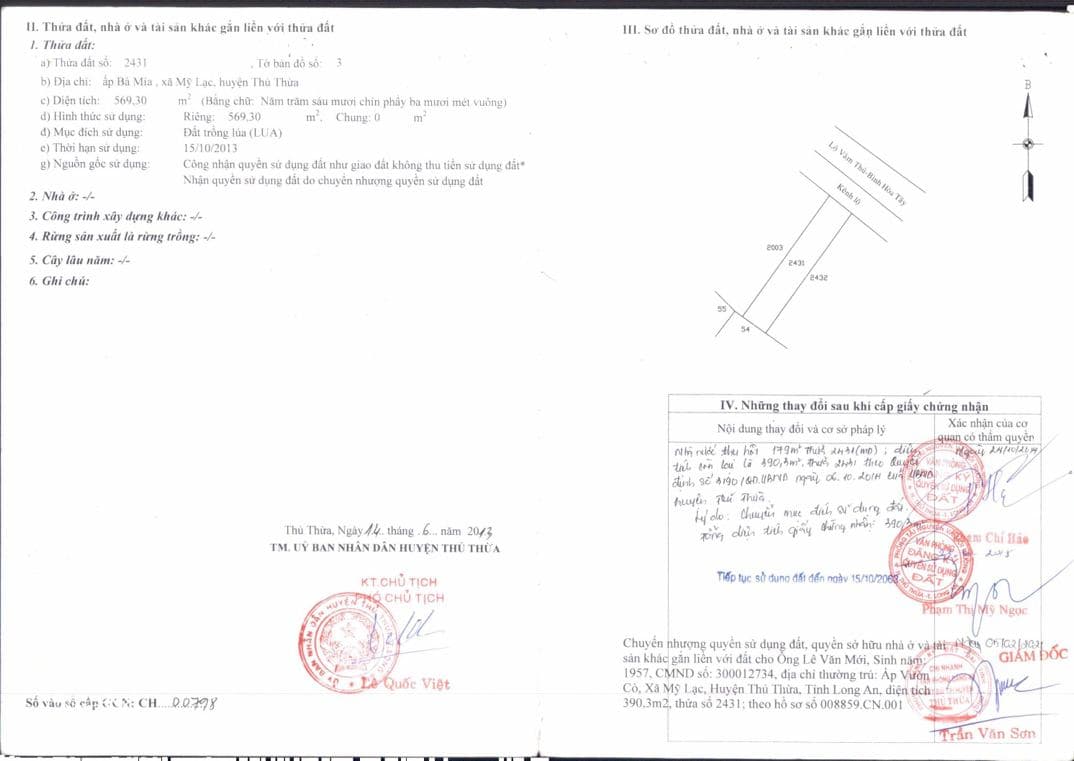 II. Thửa đất, nhà ở và tài sản khác gắn liền với thửa đất
1. Thửa đất:
a) Thửa đất số: 2431 , Tờ bản đồ số: 3
b) Địa chỉ: ấp Bà Mía , xã Mỹ Lạc, huyện Thủ Thừa
c) Diện tích: 569,30 m² (Bằng chữ: Năm trăm sáu mươi chín phẩy ba mươi mét vuông)
d) Hình thức sử dụng: Riêng: 569,30 m². Chung: 0 m²
đ) Mục đích sử dụng: Đất trồng lúa (LUA)
e) Thời hạn sử dụng: 15/10/2013
g) Nguồn gốc sử dụng: Công nhận quyền sử dụng đất như giao đất không thu tiền sử dụng đất*
Nhận quyền sử dụng đất do chuyển nhượng quyền sử dụng đất
2. Nhà ở: -/-
3. Công trình xây dựng khác: -/-
4. Rừng sản xuất là rừng trồng: -/-
5. Cây lâu năm: -/-
6. Ghi chú:
Thủ Thừa, Ngày 14 tháng .6... năm 2013
TM. UỶ BAN NHÂN DÂN HUYỆN THỦ THỪA
KT.CHỦ TỊCH
PHÓ CHỦ TỊCH
Lê Quốc Việt
Số vào sổ cấp GCN: CH....00798
III. Sơ đồ thửa đất, nhà ở và tài sản khác gắn liền với thửa đất
B
Lộ Vàm Thủ-Bình Hòa Tây
Kênh lộ
2003
2431
2432
55
54
IV. Những thay đổi sau khi cấp giấy chứng nhận
Nội dung thay đổi và cơ sở pháp lý
Xác nhận của cơ quan có thẩm quyền
Nhà nước thu hồi 179m² thửa 2431 ; diện
tích còn lại là 390,3m², thửa 2431 theo Quyết
định số 3190/QĐ.UBND ngày 06.10.2014 của UBND
huyện Thủ Thừa.
Lý do: Chuyển mục đích sử dụng đất.
Tổng diện tích giấy chứng nhận: 390,3m²
Ngày 24/10/2014
VĂN PHÒNG
ĐĂNG KÝ
QUYỀN SỬ DỤNG
ĐẤT
Phạm Chí Hảo
Tiếp tục sử dụng đất đến ngày 15/10/2063
VĂN PHÒNG
ĐĂNG KÝ
QUYỀN SỬ DỤNG
ĐẤT
Phạm Thị Mỹ Ngọc
Chuyển nhượng quyền sử dụng đất, quyền sở hữu nhà ở và tài
sản khác gắn liền với đất cho Ông Lê Văn Mới, Sinh năm:
1957, CMND số: 300012734, địa chỉ thường trú: Ấp Vườn
Cò, Xã Mỹ Lạc, Huyện Thủ Thừa, Tỉnh Long An, diện tích
390.3m2, thửa số 2431; theo hồ sơ số 008859.CN.001
GIÁM ĐỐC
CHI NHÁNH
THỦ THỪA
Trần Văn Sơn